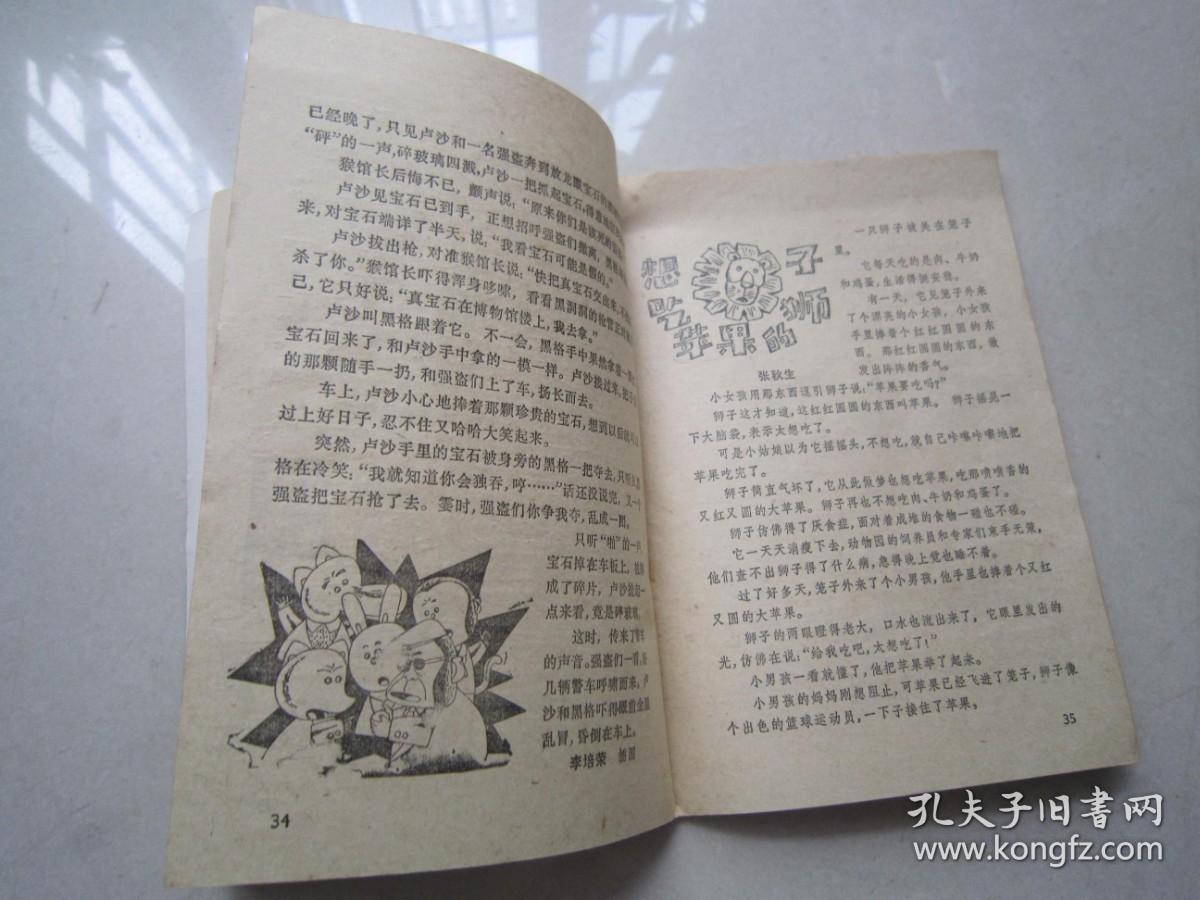 已经晚了，只见卢沙和一名强盗奔到放龙眼宝石的
“砰”的一声，碎玻璃四溅，卢沙一把抓起宝石，得意地
猴馆长后悔不已，颤声说：“原来你们是该死的
卢沙见宝石已到手，正想招呼强盗们撤离，黑格
来，对宝石端详了半天，说：“我看宝石可能是假的。”
卢沙拔出枪，对准猴馆长说：“快把真宝石交出来，不
杀了你。”猴馆长吓得浑身哆嗦，看看黑洞洞的枪管正对
己，它只好说：“真宝石在博物馆楼上，我去拿。”
卢沙叫黑格跟着它。不一会，黑格手中果然拿着一
宝石回来了，和卢沙手中拿的一模一样。卢沙接过来，把
的那颗随手一扔，和强盗们上了车，扬长而去。
车上，卢沙小心地捧着那颗珍贵的宝石，想到以后就
过上好日子，忍不住又哈哈大笑起来。
突然，卢沙手里的宝石被身旁的黑格一把夺去，只听
格在冷笑：“我就知道你会独吞，哼……”话还没说完，又一个
强盗把宝石抢了去。霎时，强盗们你争我夺，乱成一团。
只听“啪”的一声
宝石掉在车板上，
成了碎片，卢沙拾起一
点来看，竟是碎玻璃。
这时，传来了警车
的声音。强盗们一看，
几辆警车呼啸而来，卢
沙和黑格吓得眼前金星
乱冒，昏倒在车上。
李培荣 插图
34
想吃苹果的狮子
张秋生
一只狮子被关在笼子
里。
它每天吃的是肉、牛奶
和鸡蛋，生活得挺安稳。
有一天，它见笼子外来
了个漂亮的小女孩，小女孩
手里捧着个红红圆圆的东
西。那红红圆圆的东西，散
发出阵阵的香气。
小女孩用那东西逗引狮子说：“苹果要吃吗？”
狮子这才知道，这红红圆圆的东西叫苹果。狮子摇晃一
下大脑袋，表示太想吃了。
可是小姑娘以为它摇摇头，不想吃，就自己咔嚓咔嚓地把
苹果吃完了。
狮子简直气坏了，它从此做梦也想吃苹果，吃那喷喷香的
又红又圆的大苹果。狮子再也不想吃肉、牛奶和鸡蛋了。
狮子仿佛得了厌食症，面对着成堆的食物一碰也不碰。
它一天天消瘦下去，动物园的饲养员和专家们束手无策，
他们查不出狮子得了什么病，急得晚上觉也睡不着。
过了好多天，笼子外来了个小男孩，他手里也捧着个又红
又圆的大苹果。
狮子的两眼瞪得老大，口水也流出来了，它眼里发出的
光，仿佛在说：“给我吃吧，太想吃了！”
小男孩一看就懂了，他把苹果举了起来。
小男孩的妈妈刚想阻止，可苹果已经飞进了笼子，狮子像
个出色的篮球运动员，一下子接住了苹果。
35
孔夫子旧书网
www.kongfz.com